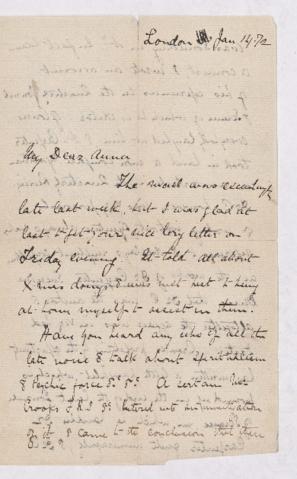 London Jan 14. 72
My Dear Anna
The mail was exceedingly
late last week, but I was glad at
last to get your nice long letter on
Friday evening. It told all about
Xmas doings & was next to being
at home myself to assist in them.
Have you heard any echo of all the
late noise & talk about spiritualism
& Psychic force &c. &c. A certain Mr
Crookes F.R.S. &c. entered into an investigation
of it & came to the conclusion that there